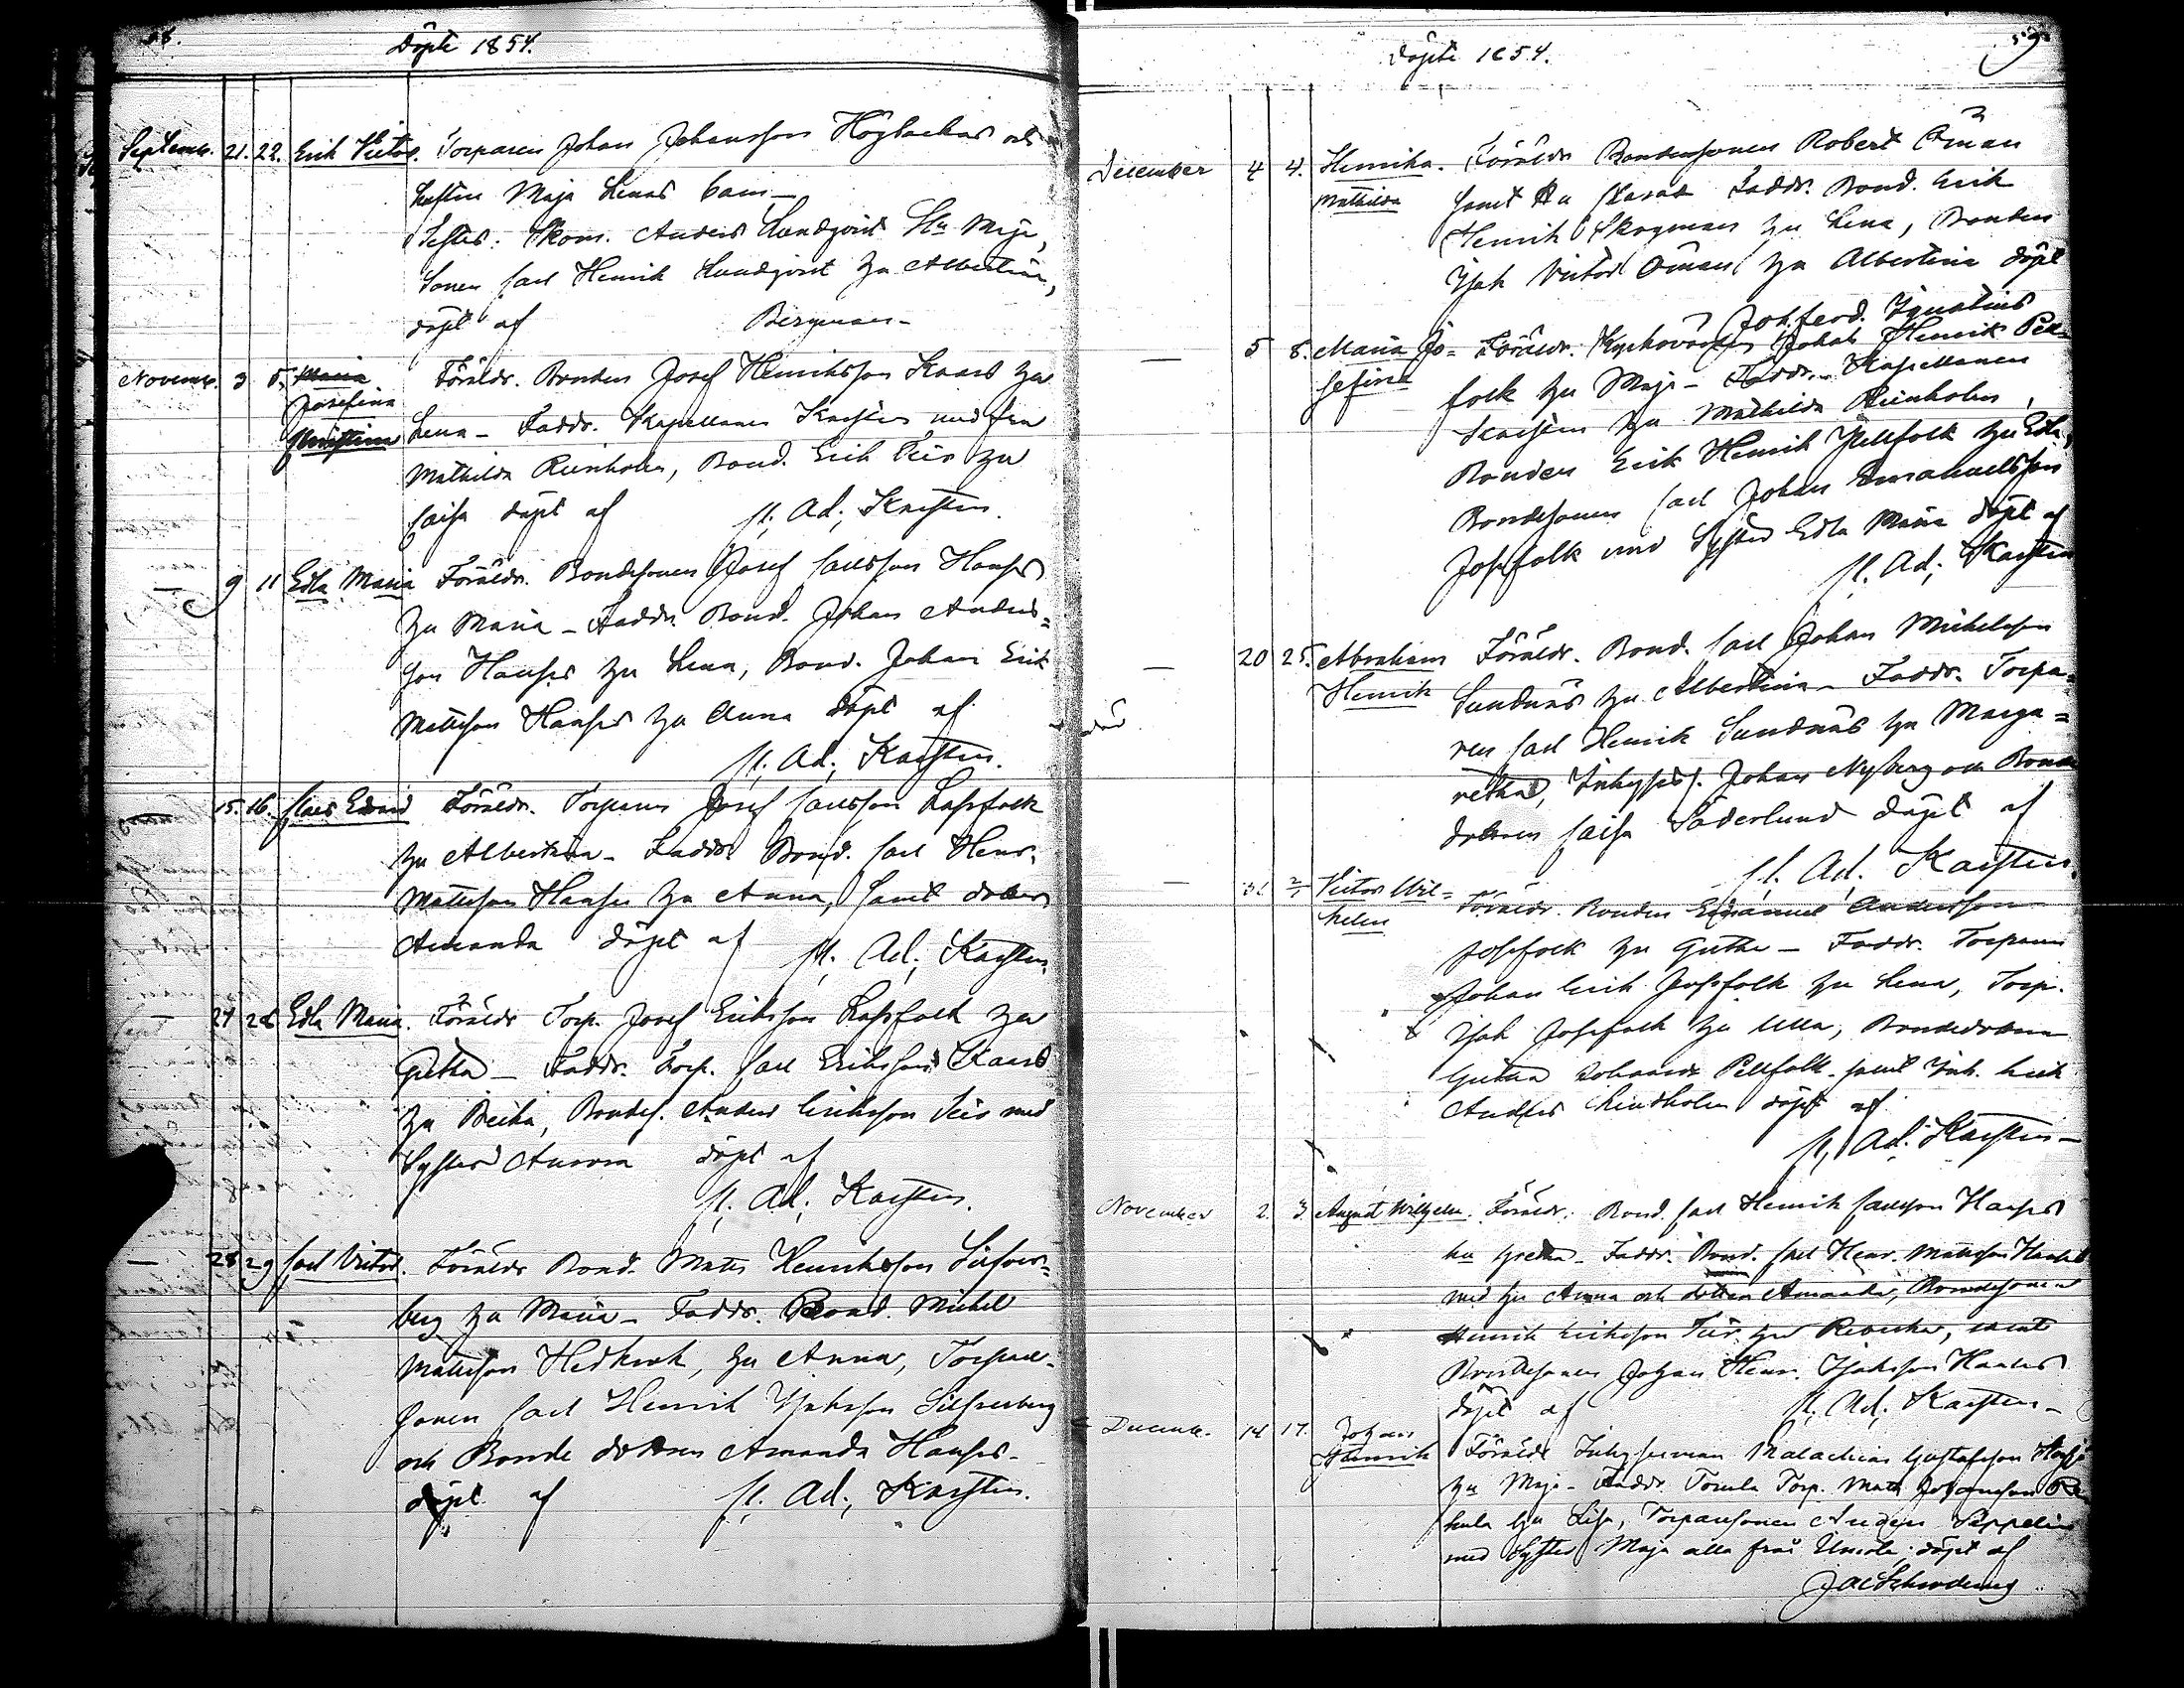 58.
Döpte 1854.
Septemb. 21. 22. Erik Victor. Torparen Johan Johansson Högbackas och
hustru Maja Lenas barn
Testes: Skom. Anders Lundqvist Hu Maja,
Sonen Carl Henrik Lundqvist hu Albertina,
döpt af Bergman
Novemb. 3 5. Maria Föräldr. Bonden Josef Henriksson Kaars hu
Josefina
Christina Lena - Faddr. Kapellanen Karsten med fru
Mathilda Reinholm, Bond. Erik hu
Caisa döpt af Fr. Ad. Karsten.
9 11 Edla Maria Föräldr. Bondesonen Josef Carlsson Hanses
hu Maria - Faddr. Bond. Johan Anders=
son Hanses hu Lena, Bond. Johan Erik
Mattsson Hanses hu Anna döpt af
Fr. Ad. Karsten.
15. 16. Claes Edvard Föräldr. Torparen Josef Carlsson Lassfolk
hu Albertina - Faddr. Bond. Carl Henr.
Mattsson Hanses hu Anna, samt dottren
Amanda döpt af Fr. Ad. Karsten.
Edla Maria. Föräldr Torp. Josef Eriksson Lassfolk hu
Gretha - Faddr. Torp. Carl Eriksson Kaars
hu Beika, Bondes. Anders Eriksson med
Syster Aurora döpt af
Fr. Ad. Karsten.
28 29 Carl Victor. Föräldr Bond. Matts Henriksson Silfver=
berg hu Maria - Faddr. Bond. Michel
Mattsson Hedkrok, hu Anna, Torpare-
sonen Carl Henrik Isaksson Silfverberg
och Bonde dottren Amanda Hanses.
döpt af Fr. Ad. Karsten.
Döpte 1854.
59
December 4 4. Henrika. Föräldr Bondesonen Robert Öman
Mathilda samt Hu Sara Faddr. Bond. Erik
Henrik Skogman hu Lena, Bonden
Isak Victor Öman hu Albertina döpt
Joh. Ferd. Ignatius
5 8. Maria Jo= Föräldr. Kyrkovärden Johan Henrik Pell=
sefina folk hu Maja - Faddr. Kapellanen
Karsten hu Mathilda Reinholm,
Bonden Erik Henrik Pellfolk hu Edla,
Bondesonen Carl Johan Emanuelsson
Jossfolk med Syster Edla Maria döpt af
Fr. Ad. Karsten
20 25. Abraham Föräldr. Bond. Carl Johan Michelsson
Henrik Sundnäs hu Albertina - Faddr. Torpa=
ren Carl Henrik Sundnäs hu Marga=
retha, Inhyses. Johan Nyberg och Bonde
dottren Caisa Söderlund döpt af
Fr. Ad. Karsten.
31. 2/1 Victor Wil= Föräldr. Bonden Emanuel Andersson
helm Jossfolk hu Gretha - Faddr. Torparen
Johan Erik Jossfolk hu Lena, Torp.
Isak Jossfolk hu Ulla, Bondedottren
Gretha Johansd. Pellfolk samt Inh. Erik
Anders Lindholm döpt af
Fr. Ad. Karsten
November 2. 3. August Wilhelm. Föräldr: Bond. Carl Henrik Carlsson Hanses
hu Gretha - Faddr. Bond. Carl Henr. Mattsson Hanses
med hu Anna och dottren Amanda, Bondesonen
Henrik Eriksson hu Rebecka, samt
Bondesonen Johan Henr. Isaksson Hanses
döpt af Fr. Ad. Karsten
Decemb. 14 17. Johan
Henrik Föräldr Inhysesman Malachias Gustafsson
hu Maja - Faddr. Torp. Matts Johansson
hu Lisa, Torparesonen Anders Seppelin
med Syster Maja alla från; döpt af